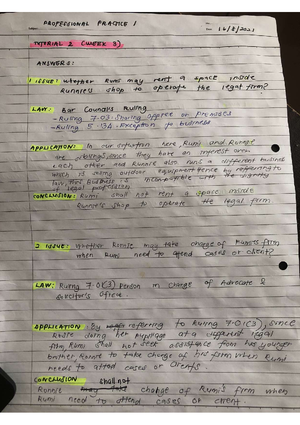 PROFESSIONAL PRACTICE 1
16/8/2021
TUTORIAL 2 (WEEK 3)
ANSWERS:
1 ISSUE: Whether Rumi may rent a space inside
Ronnie's shop to operate the legal firm?
LAW: Bar Council's Ruling
- Ruling 7.03 Sharing Office or Premises
- Ruling 5. Exception to business
APPLICATION: In our situation here Rumi and Ronnie
are siblings since they have an interest
each other and Ronnie also runs a different business
which is outdoor equipment hence by referring to
law, this business is incompatible with the dignity
of legal profession
CONCLUSION: Rumi shall not rent a space inside
Ronnie's shop to operate the legal firm
2 ISSUE: Whether Ronnie may take charge of Rumi's firm
when Rumi need to attend cases or client?
LAW: Ruling 7.01(3) Person in charge of Advocate &
Solicitor's office.
APPLICATION: By referring to Ruling 7.01(3), since
doing her pupillage at a different legal
firm, Rumi shall not seek assistance from his younger
brother Ronnie to take charge of his firm when Rumi
needs to attend cases or clients.
CONCLUSION shall not
Ronnie charge of Rumi's firm when
Rumi need to attend cases or client.